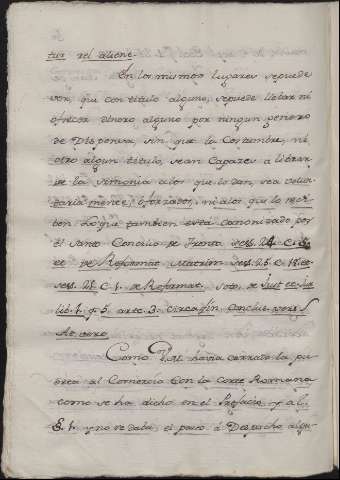 tur vel aliene.
En los mismos lugares se puede
ver, que con titulo alguno, se puede llebar ni
ofrecer dinero alguno por ningun genero
de Dispensa, sin que la Costumbre, ni
otro algun titulo, sean Capazes a librar
de la simonia a los que lo dan, sea volun
tariamente, o forzados, ni a los que lo reci
ben. Lo que tambien está canonizado por
el Santo Concilio de Trento sess. 24. C. 5.
de Reformat. Matrim. sess. 25. C. 18. et
sess. 21. C. 1. de Reformat. Soto, de Just. et
lib. 9. q. 5. art. 3. circa fin. Conclus. vers.
At vero
Como V.M. havia cerrado la pu
erta al Comercio con la Corte Romana
como se ha dicho en el Prefacio y al
§. 1. y no se daba el paso á Despacho algu-